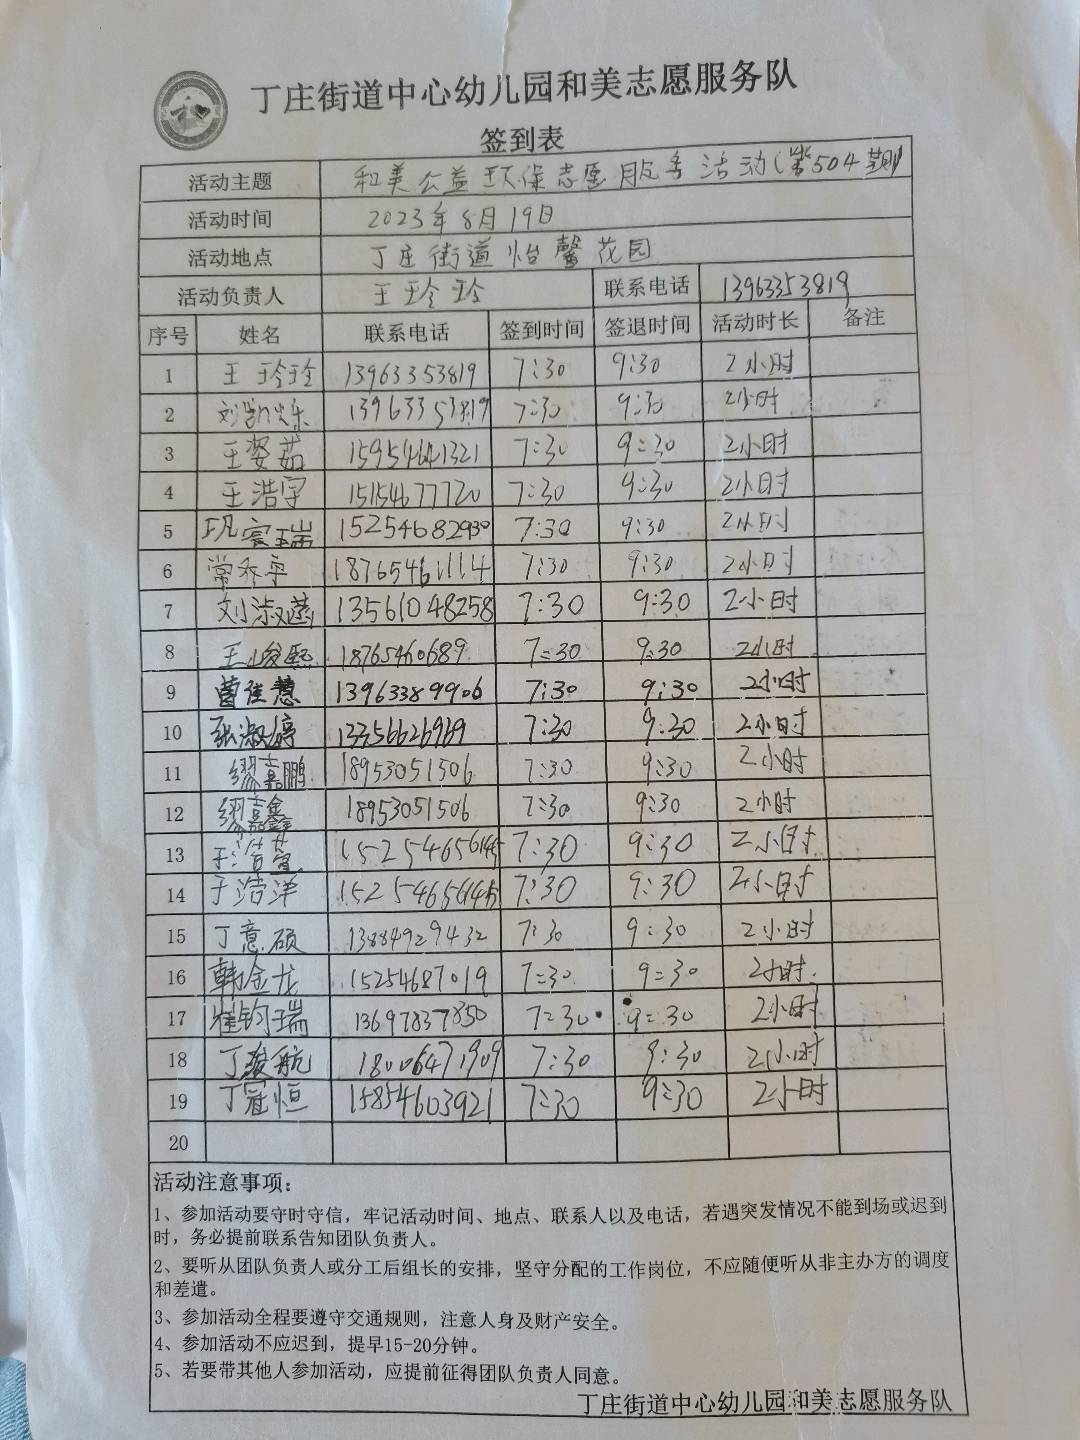 丁庄街道中心幼儿园和美志愿服务队
签到表
活动主题 和美公益环保志愿服务活动(第504期)
活动时间 2023年8月19日
活动地点 丁庄街道怡馨花园
活动负责人 王玲玲 联系电话 13963353819
序号 姓名 联系电话 签到时间 签退时间 活动时长 备注
1 王玲玲 13963353819 7:30 9:30 2小时
2 刘凯乐 13963353819 7:30 9:30 2小时
3 王姿茹 15954641321 7:30 9:30 2小时
4 王浩宇 15154677720 7:30 9:30 2小时
5 巩睿瑞 15254682930 7:30 9:30 2小时
6 常乔宇 18765461114 7:30 9:30 2小时
7 刘淑燕 13561048258 7:30 9:30 2小时
8 王峻熙 18765460689 7:30 9:30 2小时
9 曹佳慧 13963389906 7:30 9:30 2小时
10 张淑婷 13356626969 7:30 9:30 2小时
11 缪嘉鹏 18953051506 7:30 9:30 2小时
12 缪嘉鑫 18953051506 7:30 9:30 2小时
13 于 15254656145 7:30 9:30 2小时
14 于浩洋 15254656145 7:30 9:30 2小时
15 丁意硕 13884929432 7:30 9:30 2小时
16 韩金龙 15254687019 7:30 9:30 2小时
17 崔钧瑞 13697837850 7:30 9:30 2小时
18 丁骏航 18006471909 7:30 9:30 2小时
19 丁冠恒 15854603921 7:30 9:30 2小时
20
活动注意事项：
1、参加活动要守时守信，牢记活动时间、地点、联系人以及电话，若遇突发情况不能到场或迟到
时，务必提前联系告知团队负责人。
2、要听从团队负责人或分工后组长的安排，坚守分配的工作岗位，不应随便听从非主办方的调度
和差遣。
3、参加活动全程要遵守交通规则，注意人身及财产安全。
4、参加活动不应迟到，提早15-20分钟。
5、若要带其他人参加活动，应提前征得团队负责人同意。
丁庄街道中心幼儿园和美志愿服务队